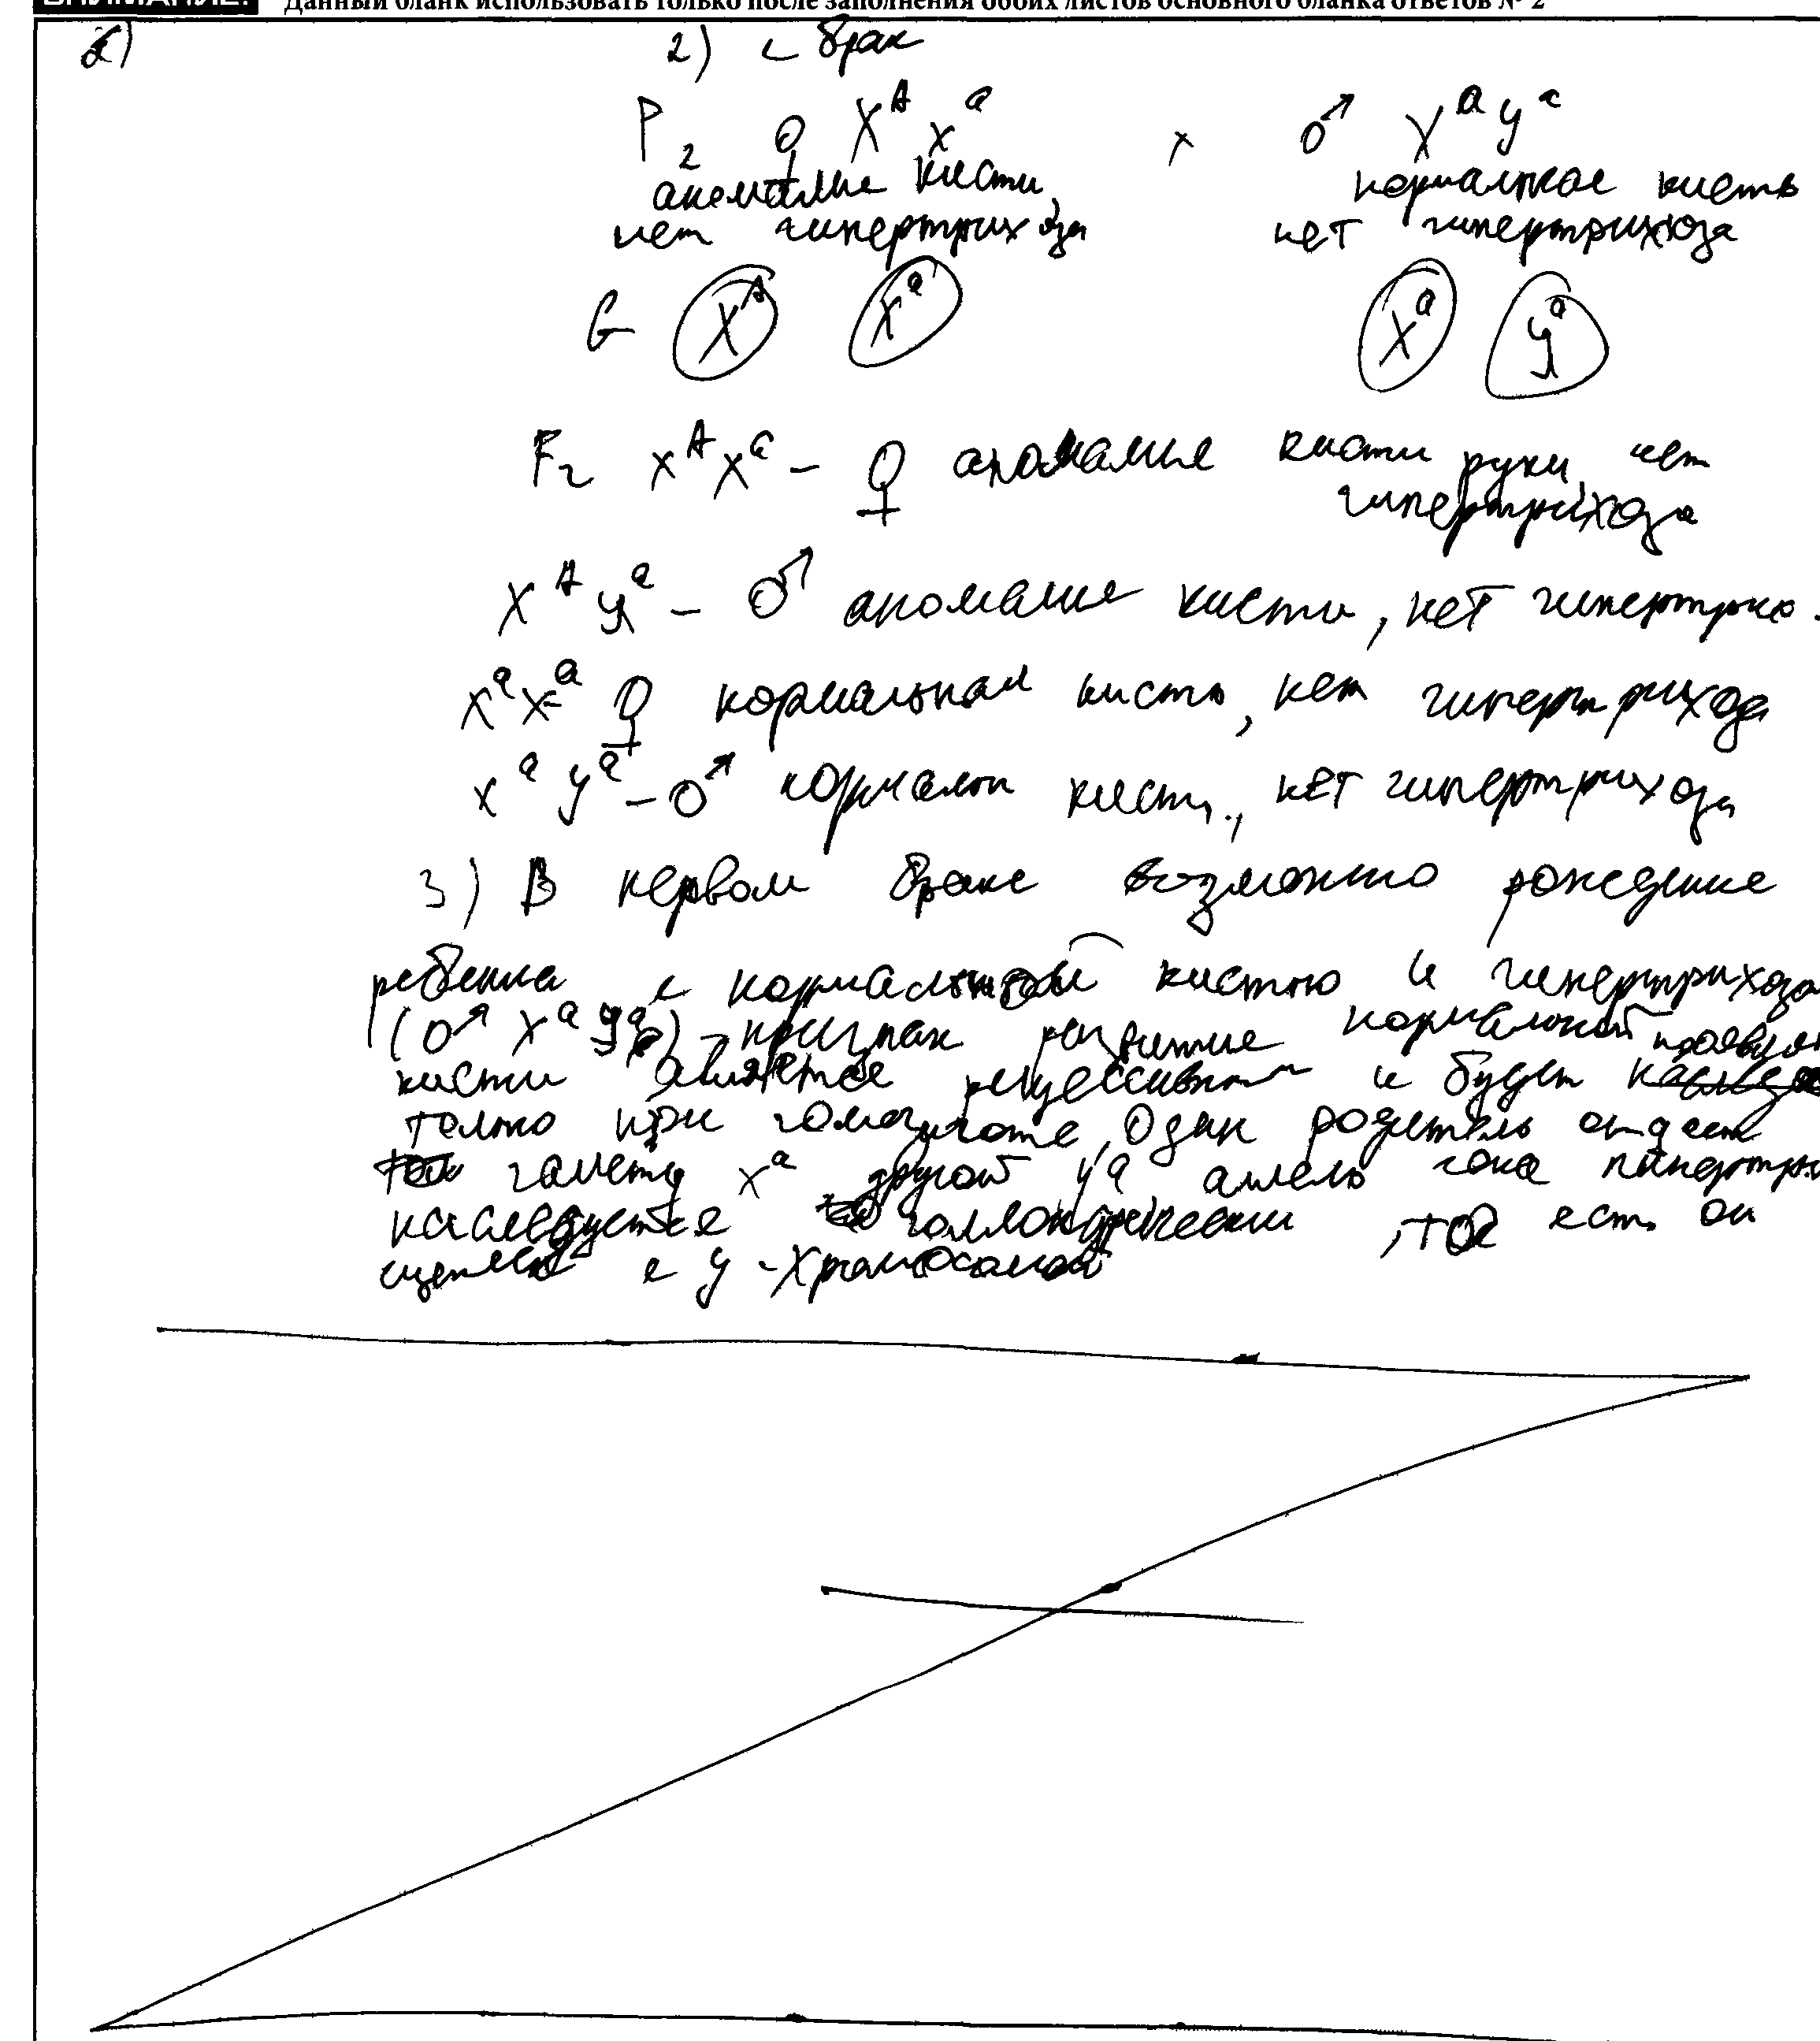 ВНИМАНИЕ! Данный бланк использовать только после заполнения обоих листов основного бланка ответов № 2
2) 2 брак
P₂ ♀ Xᴬ xᵃ × ♂ Xᵃ yᵃ
аномалие кисти, нормалькое кисть
нет гипертрихоза нет гипертрихоза
G Xᴬ Xᵃ Xᵃ yᵃ
F₂ xᴬ xᵃ – ♀ аномалие кисти руки, нет
гипертрихоза
Xᴬ yᵃ – ♂ аномалие кисти, нет гипертрихо.
xᵃ xᵃ ♀ нормальная кисть, нет гипертрихоза
xᵃ yᵃ – ♂ нормальн кисть, нет гипертрихоза
3) В первом браке возможно рождение
ребенка с нормальной кистью и гипертрихоза
(♂ xᵃ yᵃ) – признак развитие нормальной
кисти является рецессивным и будет
только при гомозиготе, Один родитель отдаст
гамету xᵃ другой yᵃ аллель гена
наследуется голландрически, то есть он
сцеплен с y-хромосомой